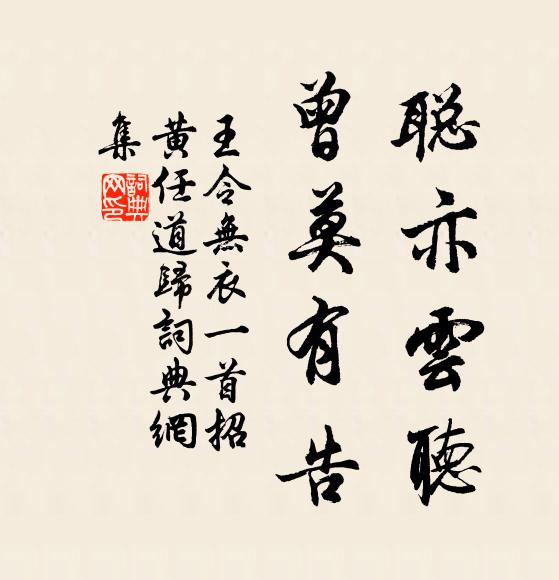 聡亦雲聽
曾莫有告
王令無衣一首招
黄任道歸詞典網
集
詞典網印